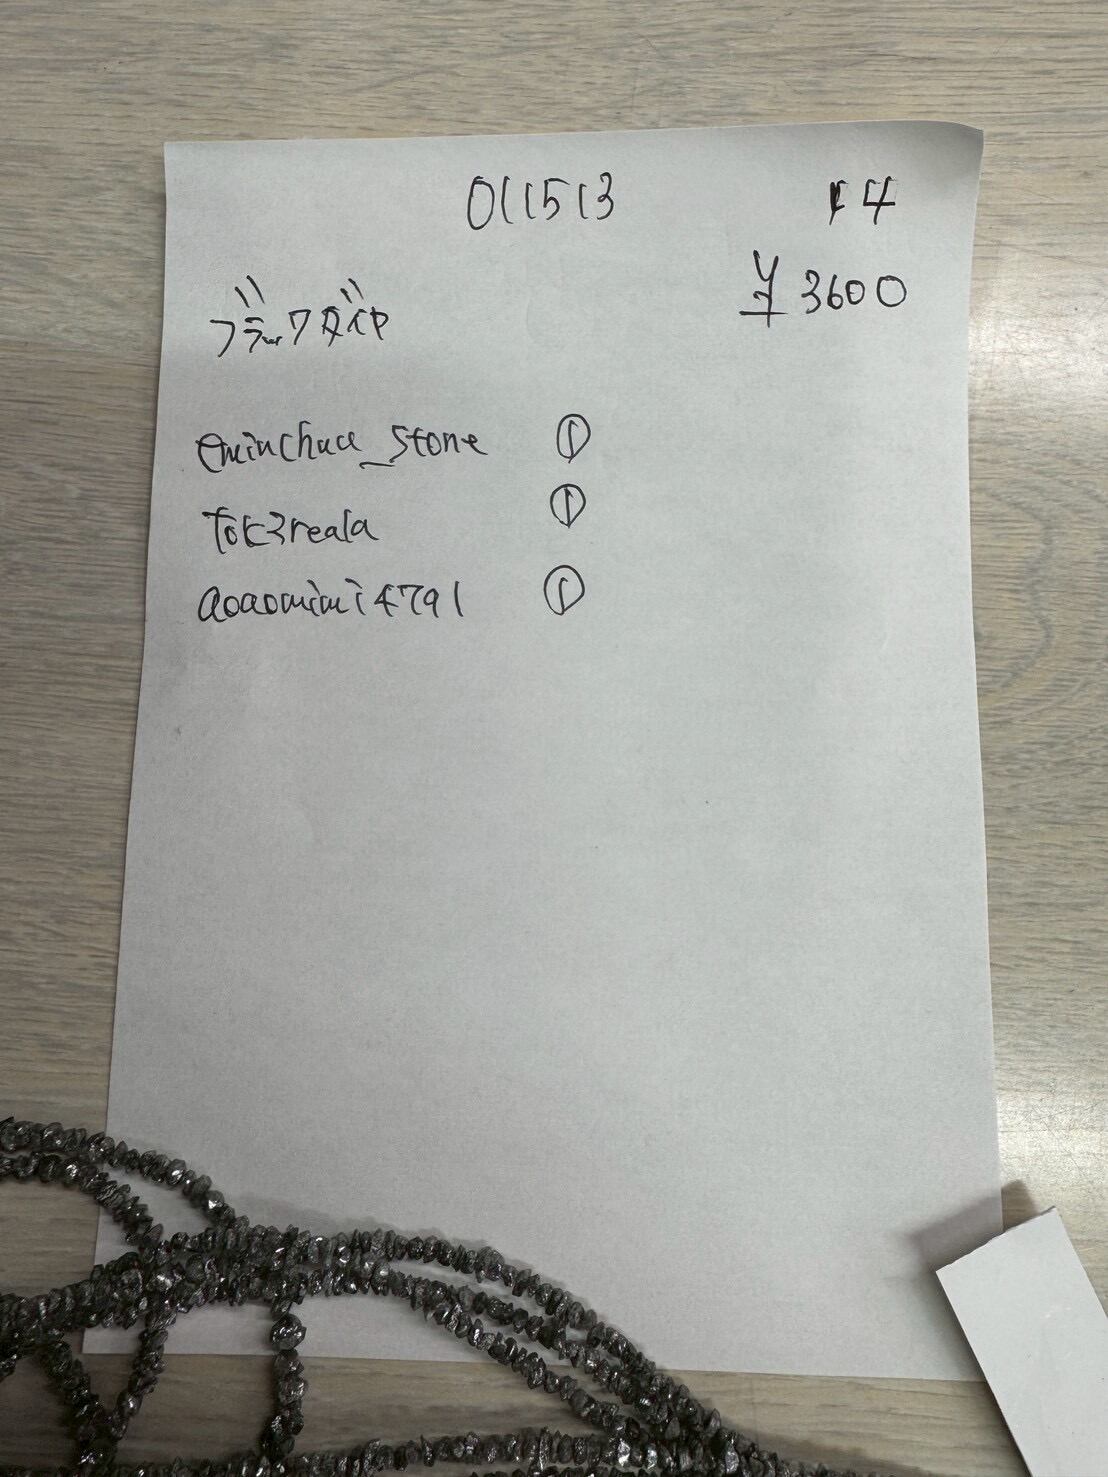 011513 14
ブラックダイヤ ¥3600
eminchuu_stone ①
tok3reala ①
aoaomimi4791 ①